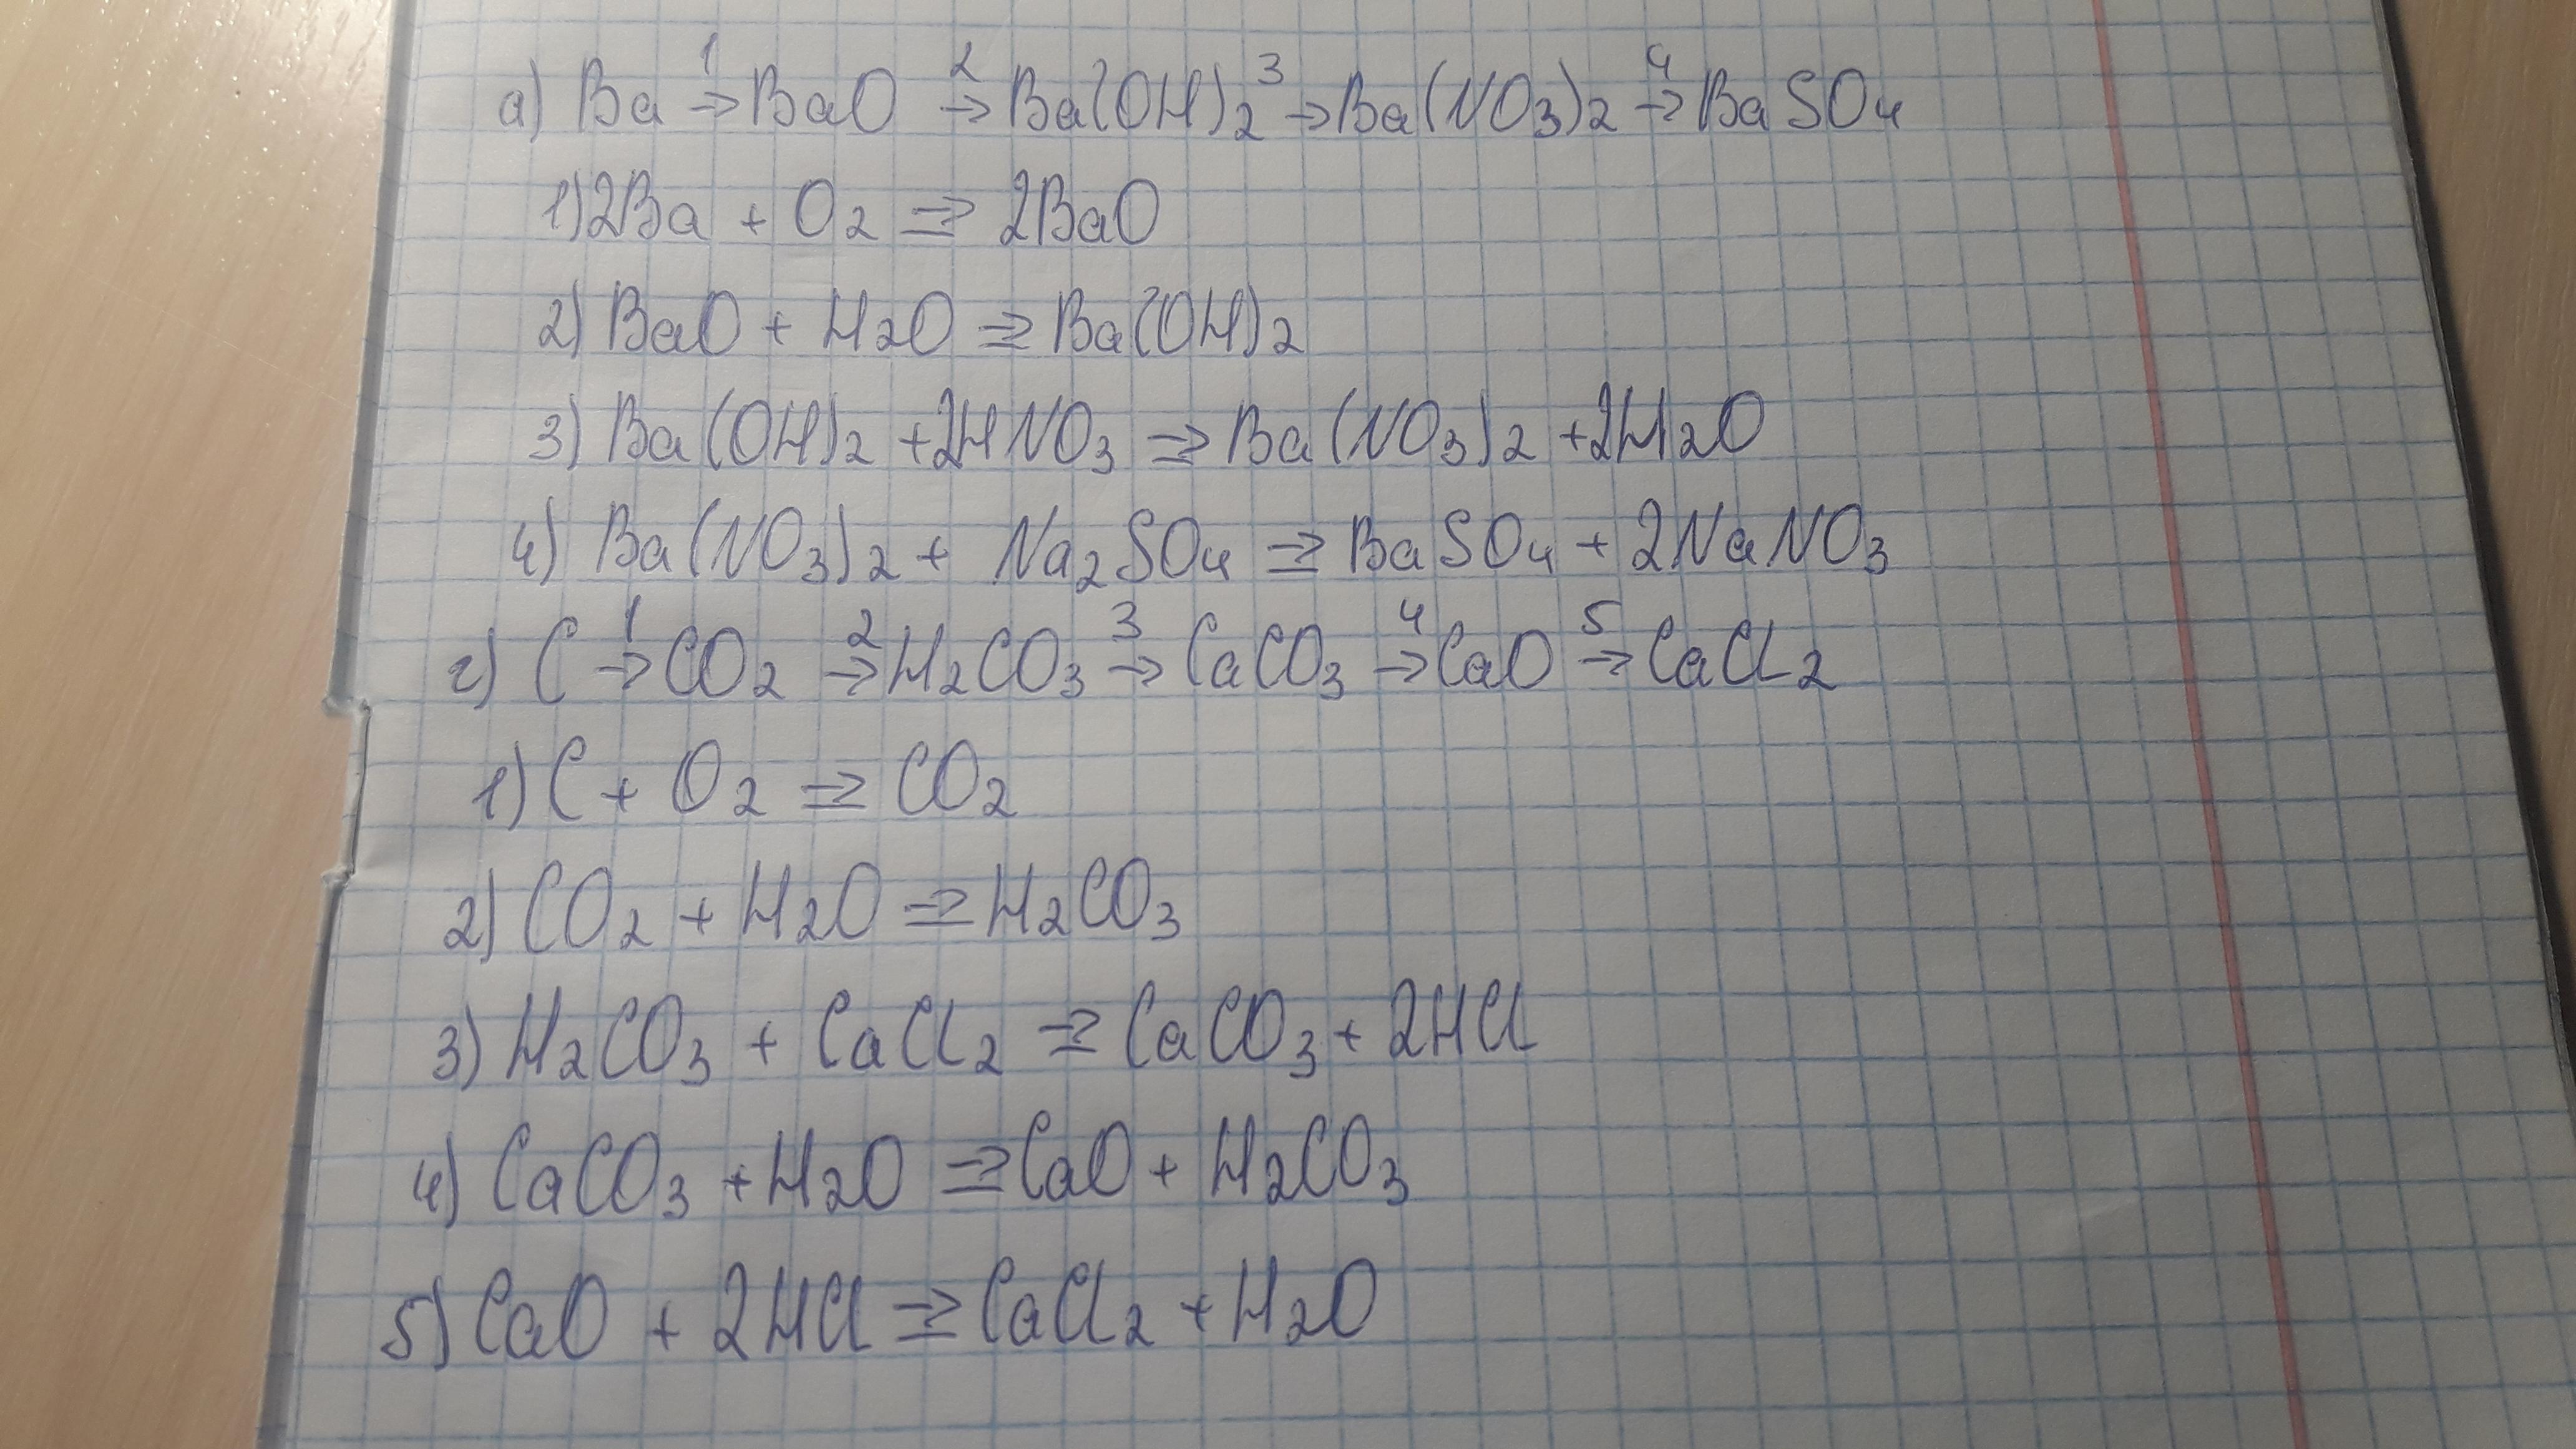 а) Ba 1→ BaO 2→ Ba(OH)2 3→ Ba(NO3)2 4→ BaSO4
1) 2Ba + O2 ⇒ 2BaO
2) BaO + H2O ⇒ Ba(OH)2
3) Ba(OH)2 + 2HNO3 ⇒ Ba(NO3)2 + 2H2O
4) Ba(NO3)2 + Na2SO4 ⇒ BaSO4 + 2NaNO3
г) C 1→ CO2 2→ H2CO3 3→ CaCO3 4→ CaO 5→ CaCl2
1) C + O2 ⇒ CO2
2) CO2 + H2O ⇒ H2CO3
3) H2CO3 + CaCl2 ⇒ CaCO3 + 2HCl
4) CaCO3 + H2O ⇒ CaO + H2CO3
5) CaO + 2HCl ⇒ CaCl2 + H2O